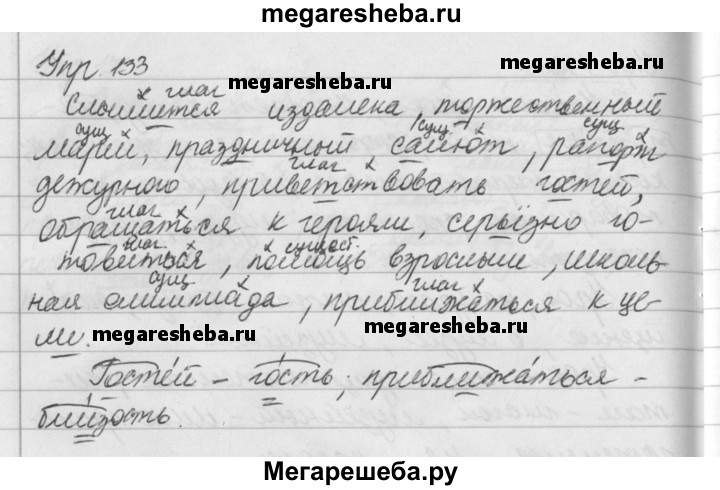 megaresheba.ru
Упр. 133
глаг
megaresheba.ru
megaresheba.ru
Слышится издалека, торжественный
сущ сущ сущ
марш, праздничный салют, рапорт
глаг
дежурного, приветствовать гостей,
глаг
обращаться к героям, серьёзно го-
глаг. сущест.
товиться, помощь взрослым, школь-
сущ глаг
ная олимпиада, приближаться к це-
ли.
megaresheba.ru
megaresheba.ru
Гостей – гость; приближаться –
близость.
Мегарешеба.ру